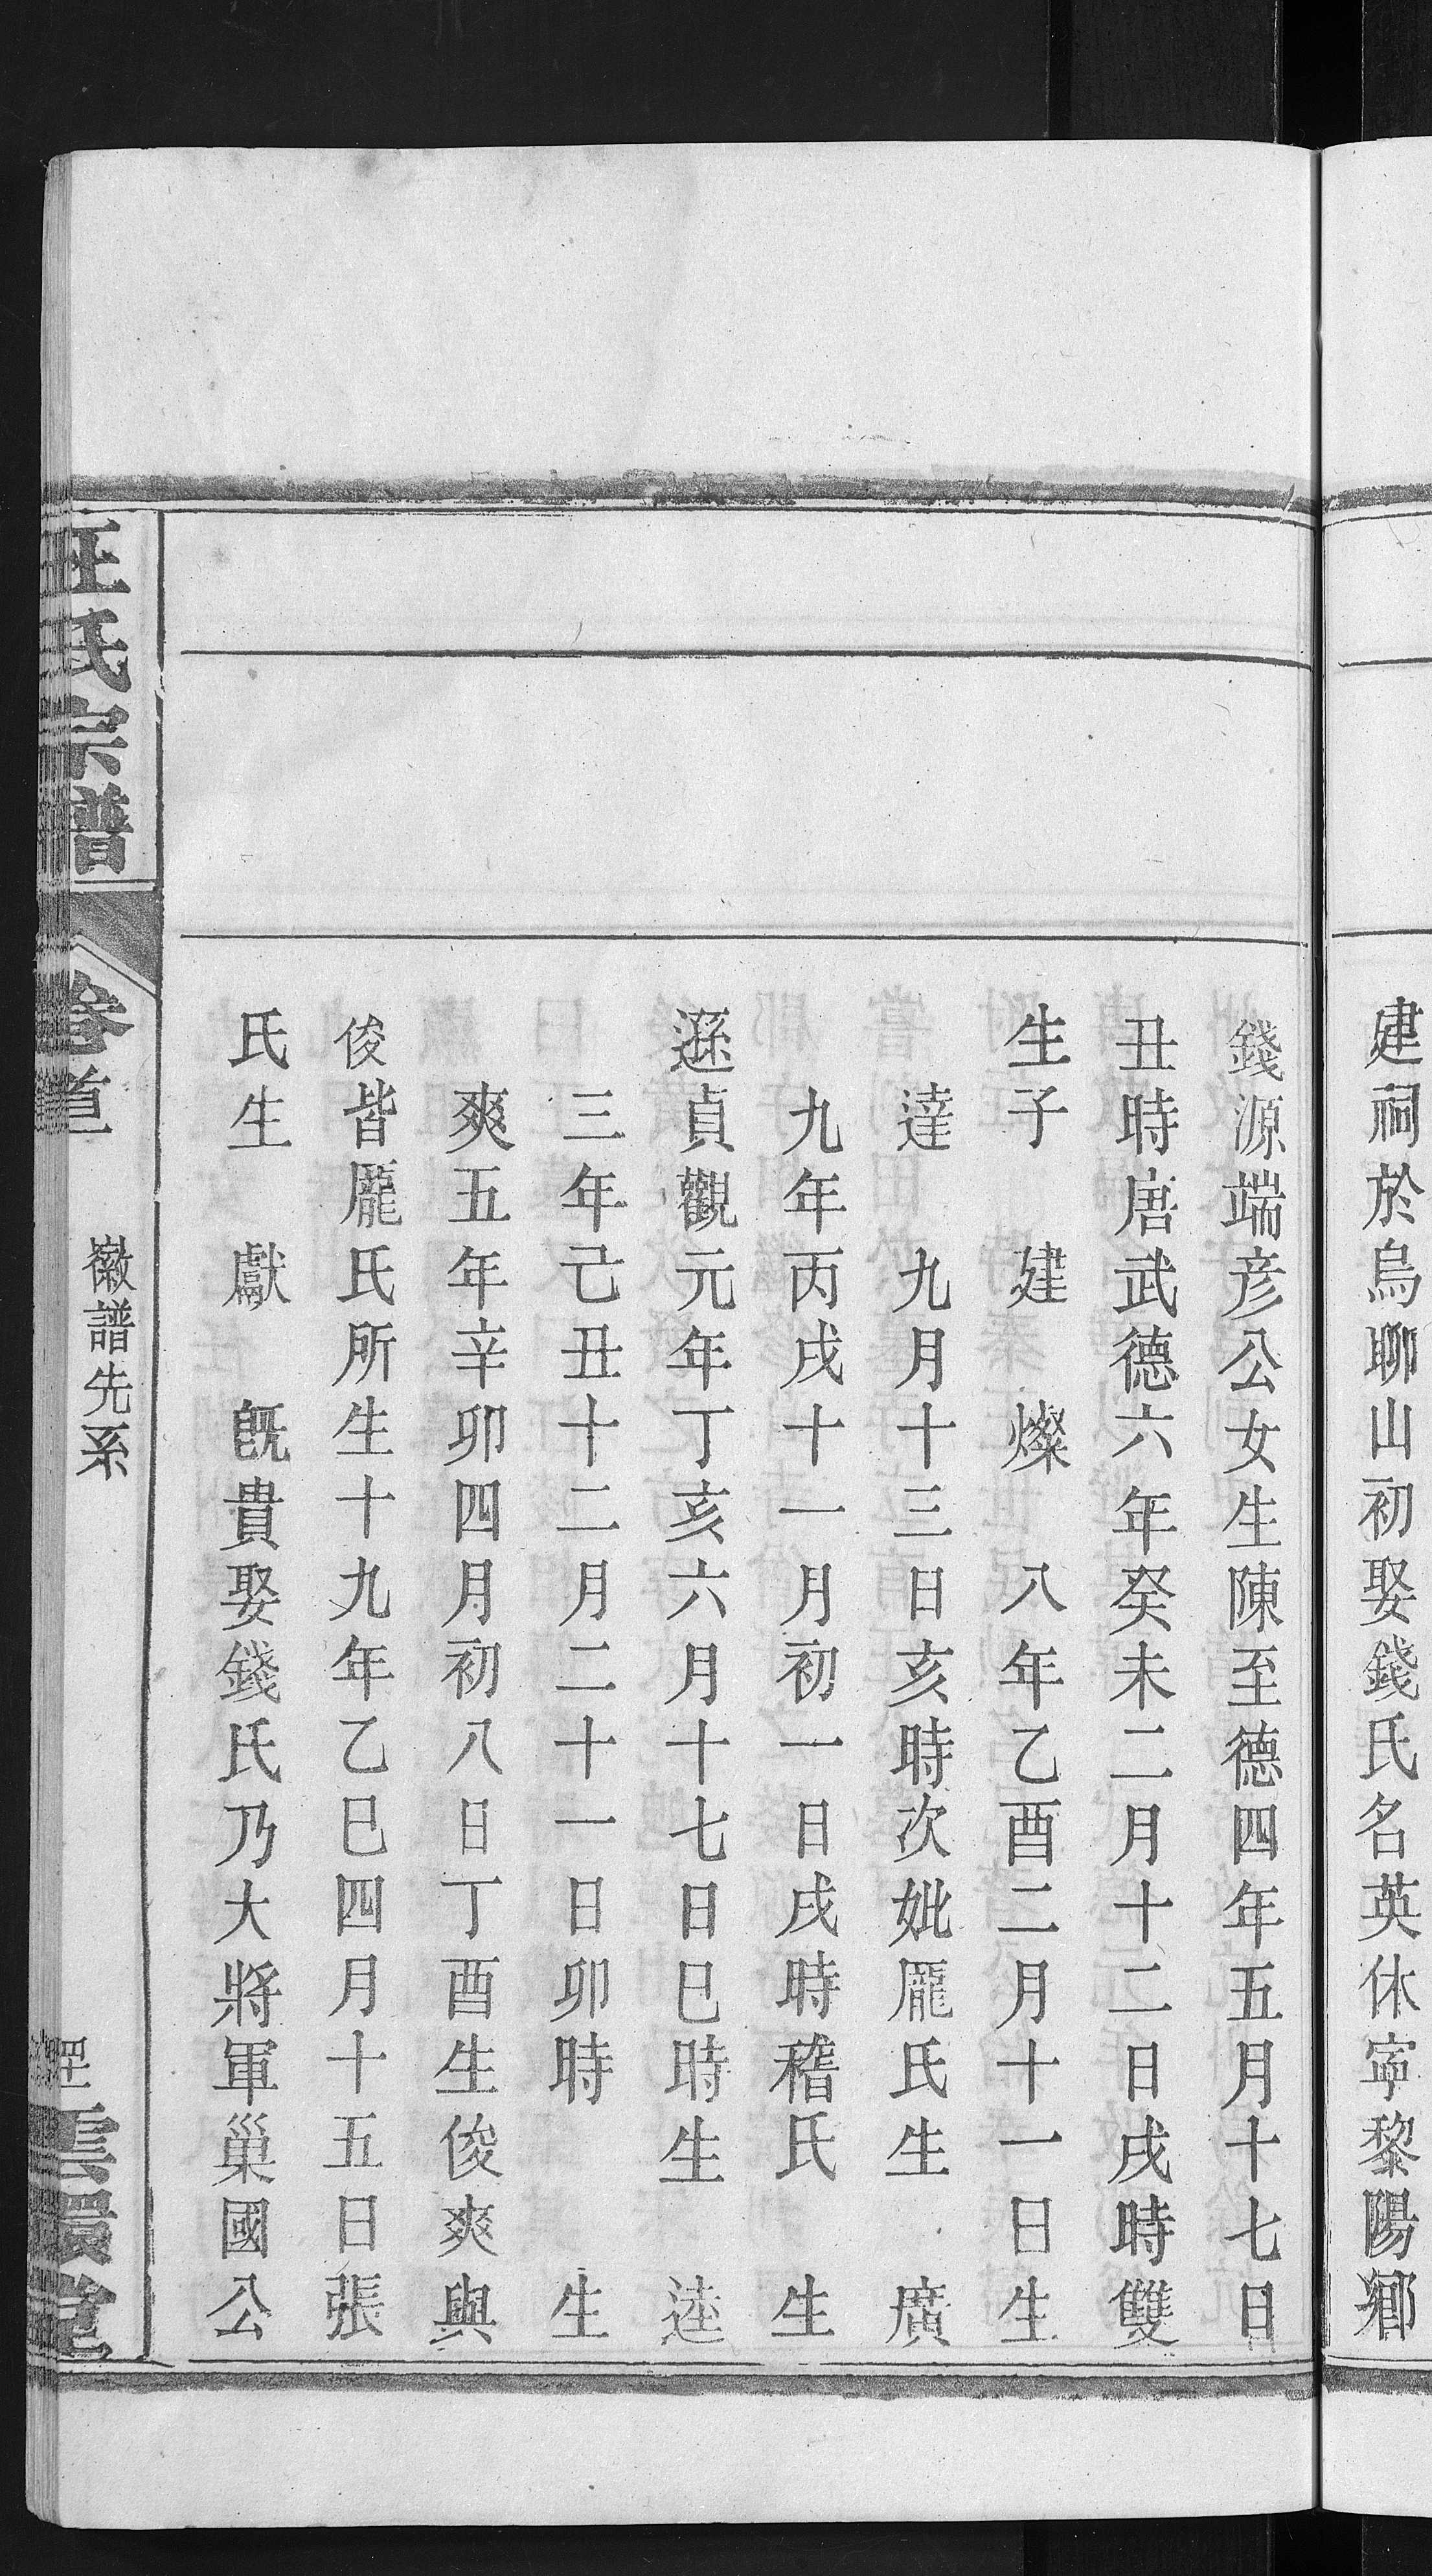 建祠於烏聊山初娶錢氏名英休寧黎陽鄉
錢源端彦公女生陳至德四年五月十七日
丑時唐武德六年癸未二月十二日戌時雙
生子　建　燦　八年乙酉二月十一日生
達　九月十三日亥時次妣龎氏生　廣
九年丙戌十一月初一日戌時稽氏　生
遜貞觀元年丁亥六月十七日巳時生　逵
三年己丑十二月二十一日卯時　生
爽五年辛卯四月初八日丁酉生俊爽與
俊皆龎氏所生十九年乙巳四月十五日張
氏生　獻　旣貴娶錢氏乃大將軍巢國公
汪氏宗譜
卷首
徽譜先系
雲環堂